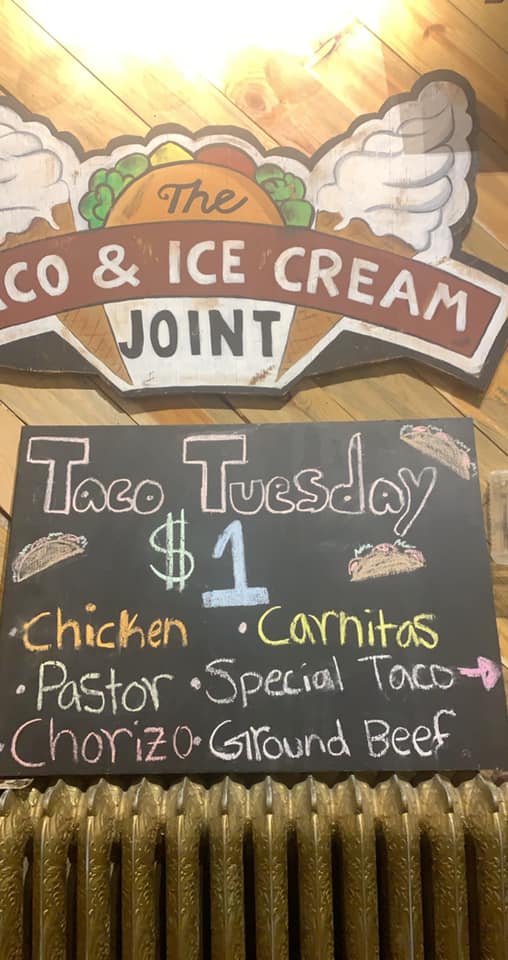 The
ACO & ICE CREAM
JOINT
Taco Tuesday
$1
•Chicken •Carnitas
•Pastor •Special Taco→
•Chorizo •Ground Beef